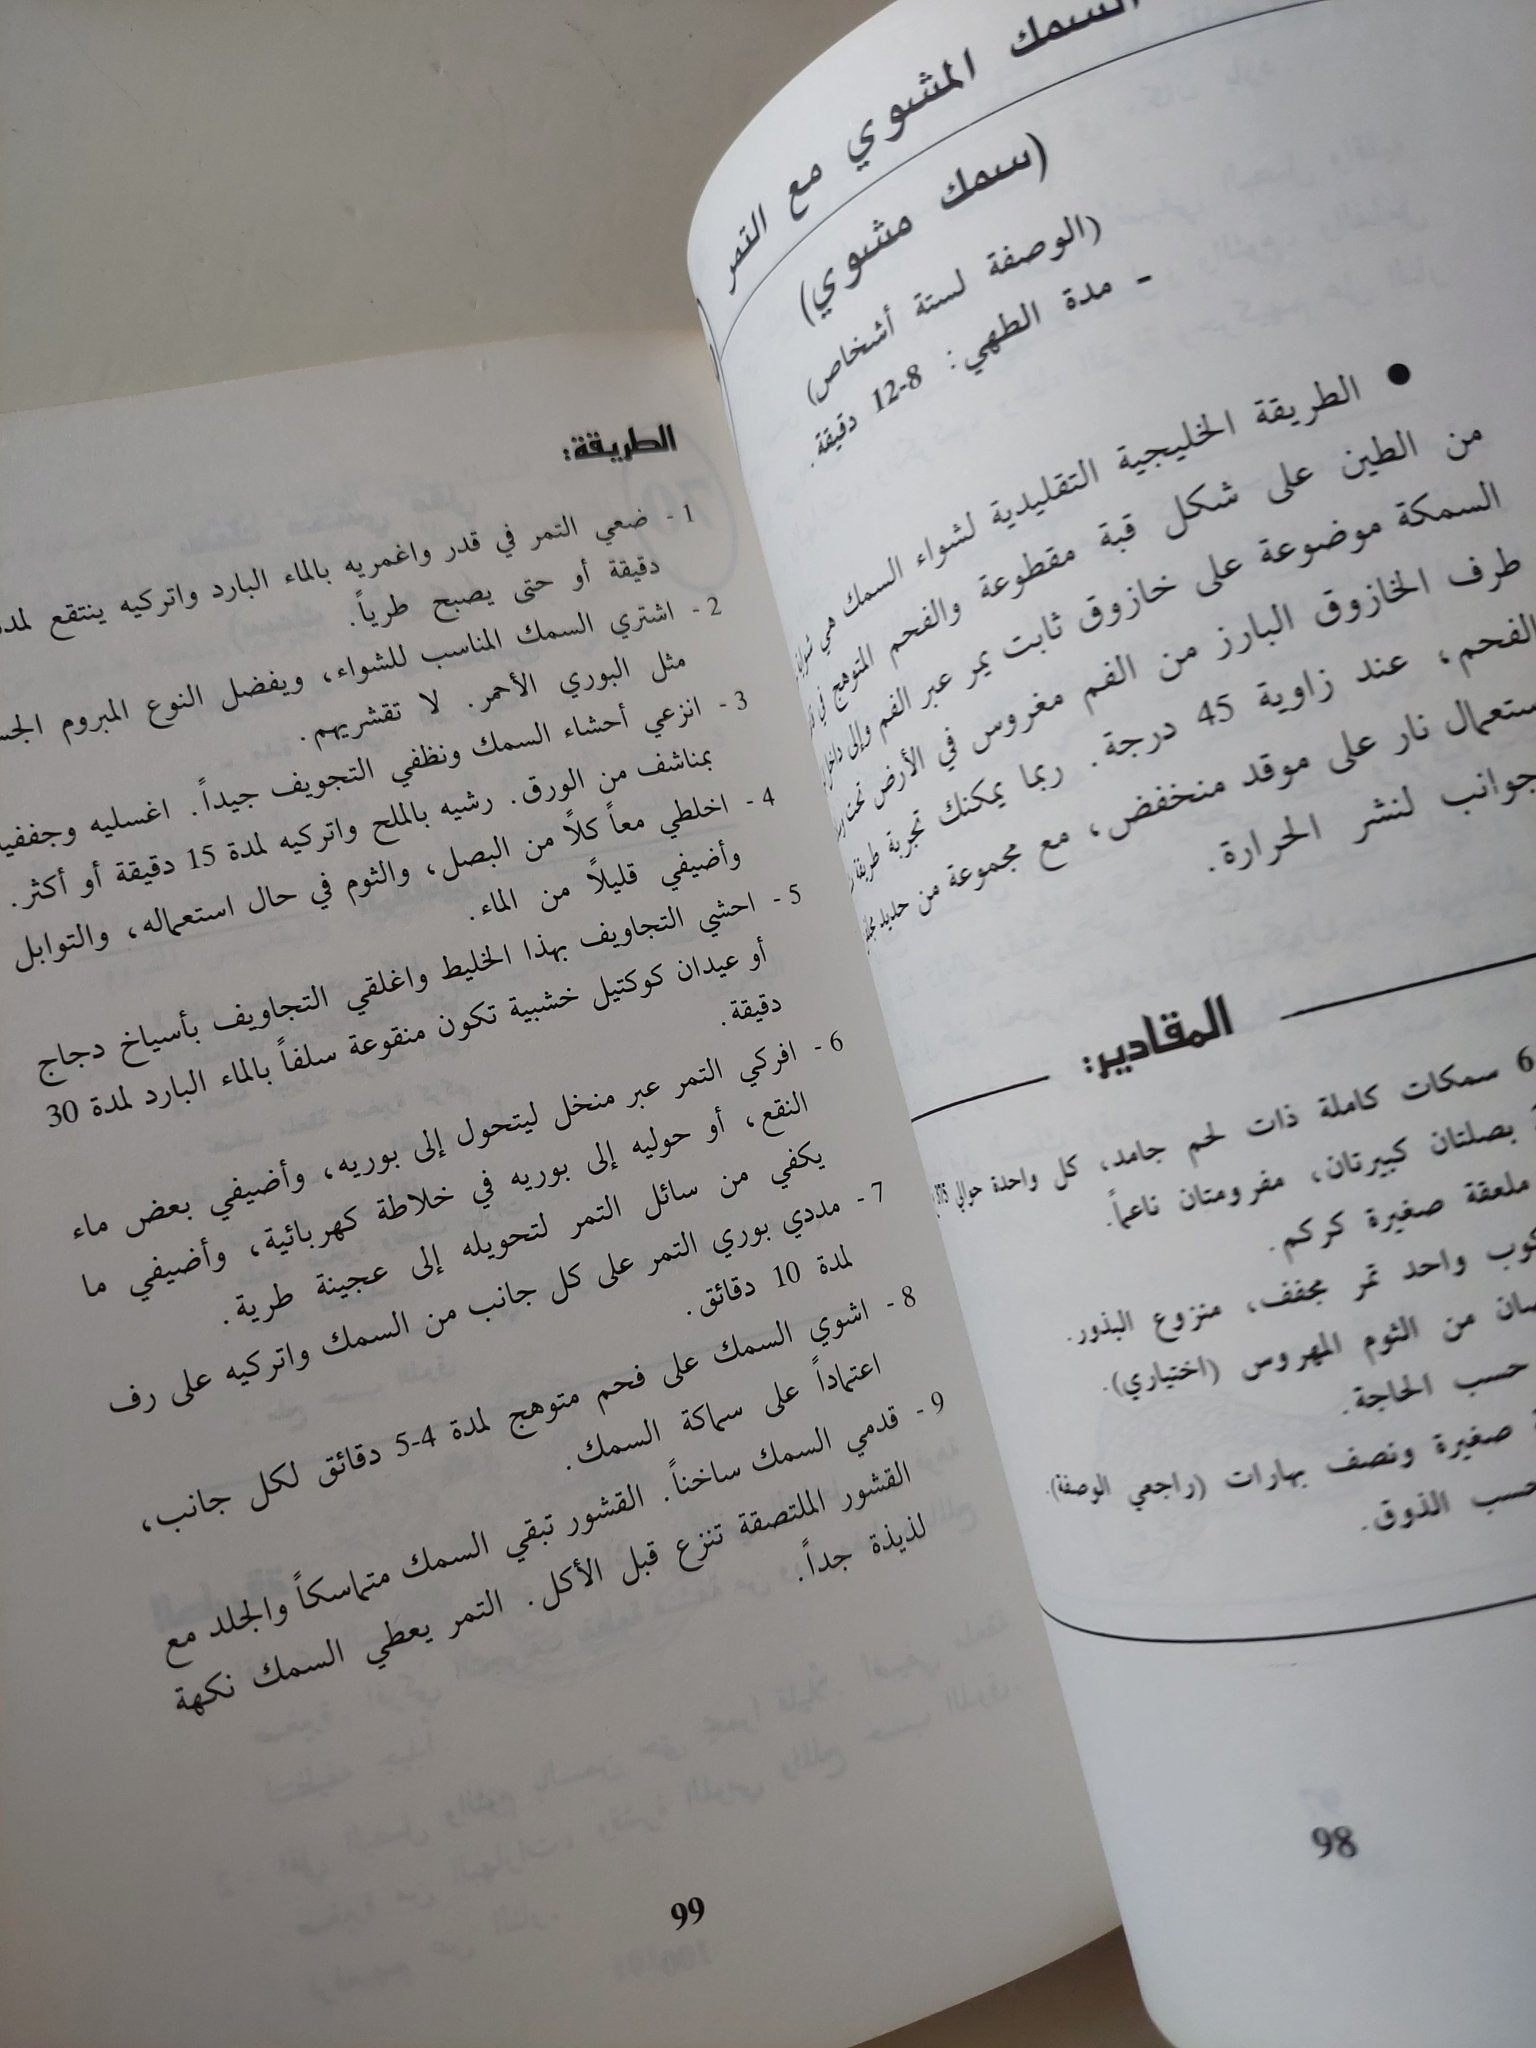 السمك المشوي مع التمر
(سمك مشوي)
(الوصفة لستة أشخاص)
- مدة الطهي: 8-12 دقيقة.
● الطريقة الخليجية التقليدية لشواء السمك هي
من الطين على شكل قبة مقطوعة والفحم المتوهج في
السمكة موضوعة على خازوق ثابت يمر عبر الفم وإلى داخل
طرف الخازوق البارز من الفم مغروس في الأرض تحت
الفحم، عند زاوية 45 درجة. ربما يمكنك تجربة طريقة
ستعمال نار على موقد منخفض، مع مجموعة من حديد
جوانب لنشر الحرارة.
المقادير:
6 سمكات كاملة ذات لحم جامد، كل واحدة حوالي 375
بصلتان كبيرتان، مفرومتان ناعماً.
ملعقة صغيرة كركم.
كوب واحد تمر مجفف، منزوع البذور.
صان من الثوم المهروس (اختياري).
حسب الحاجة.
صغيرة ونصف بهارات (راجعي الوصفة).
حسب الذوق.
98
الطريقة:
1 - ضعي التمر في قدر واغمريه بالماء البارد واتركيه ينتقع لمدة
دقيقة أو حتى يصبح طرياً.
2 - اشتري السمك المناسب للشواء، ويفضل النوع المبروم الجس
مثل البوري الأحمر. لا تقشريهم.
3 - انزعي أحشاء السمك ونظفي التجويف جيداً. اغسليه وجففيه
بمناشف من الورق. رشيه بالملح واتركيه لمدة 15 دقيقة أو أكثر.
4 - اخلطي معاً كلاً من البصل، والثوم في حال استعماله، والتوابل
وأضيفي قليلاً من الماء.
5 - احشي التجاويف بهذا الخليط واغلقي التجاويف بأسياخ دجاج
أو عيدان كوكتيل خشبية تكون منقوعة سلفاً بالماء البارد لمدة 30
دقيقة.
6 - افركي التمر عبر منخل ليتحول إلى بوريه، وأضيفي بعض ماء
النقع، أو حوليه إلى بوريه في خلاطة كهربائية، وأضيفي ما
يكفي من سائل التمر لتحويله إلى عجينة طرية.
7 - مددي بوري التمر على كل جانب من السمك واتركيه على رف
لمدة 10 دقائق.
8 - اشوي السمك على فحم متوهج لمدة 4-5 دقائق لكل جانب،
اعتماداً على سماكة السمك.
9 - قدمي السمك ساخناً. القشور تبقي السمك متماسكاً والجلد مع
القشور الملتصقة تنزع قبل الأكل. التمر يعطي السمك نكهة
لذيذة جداً.
99